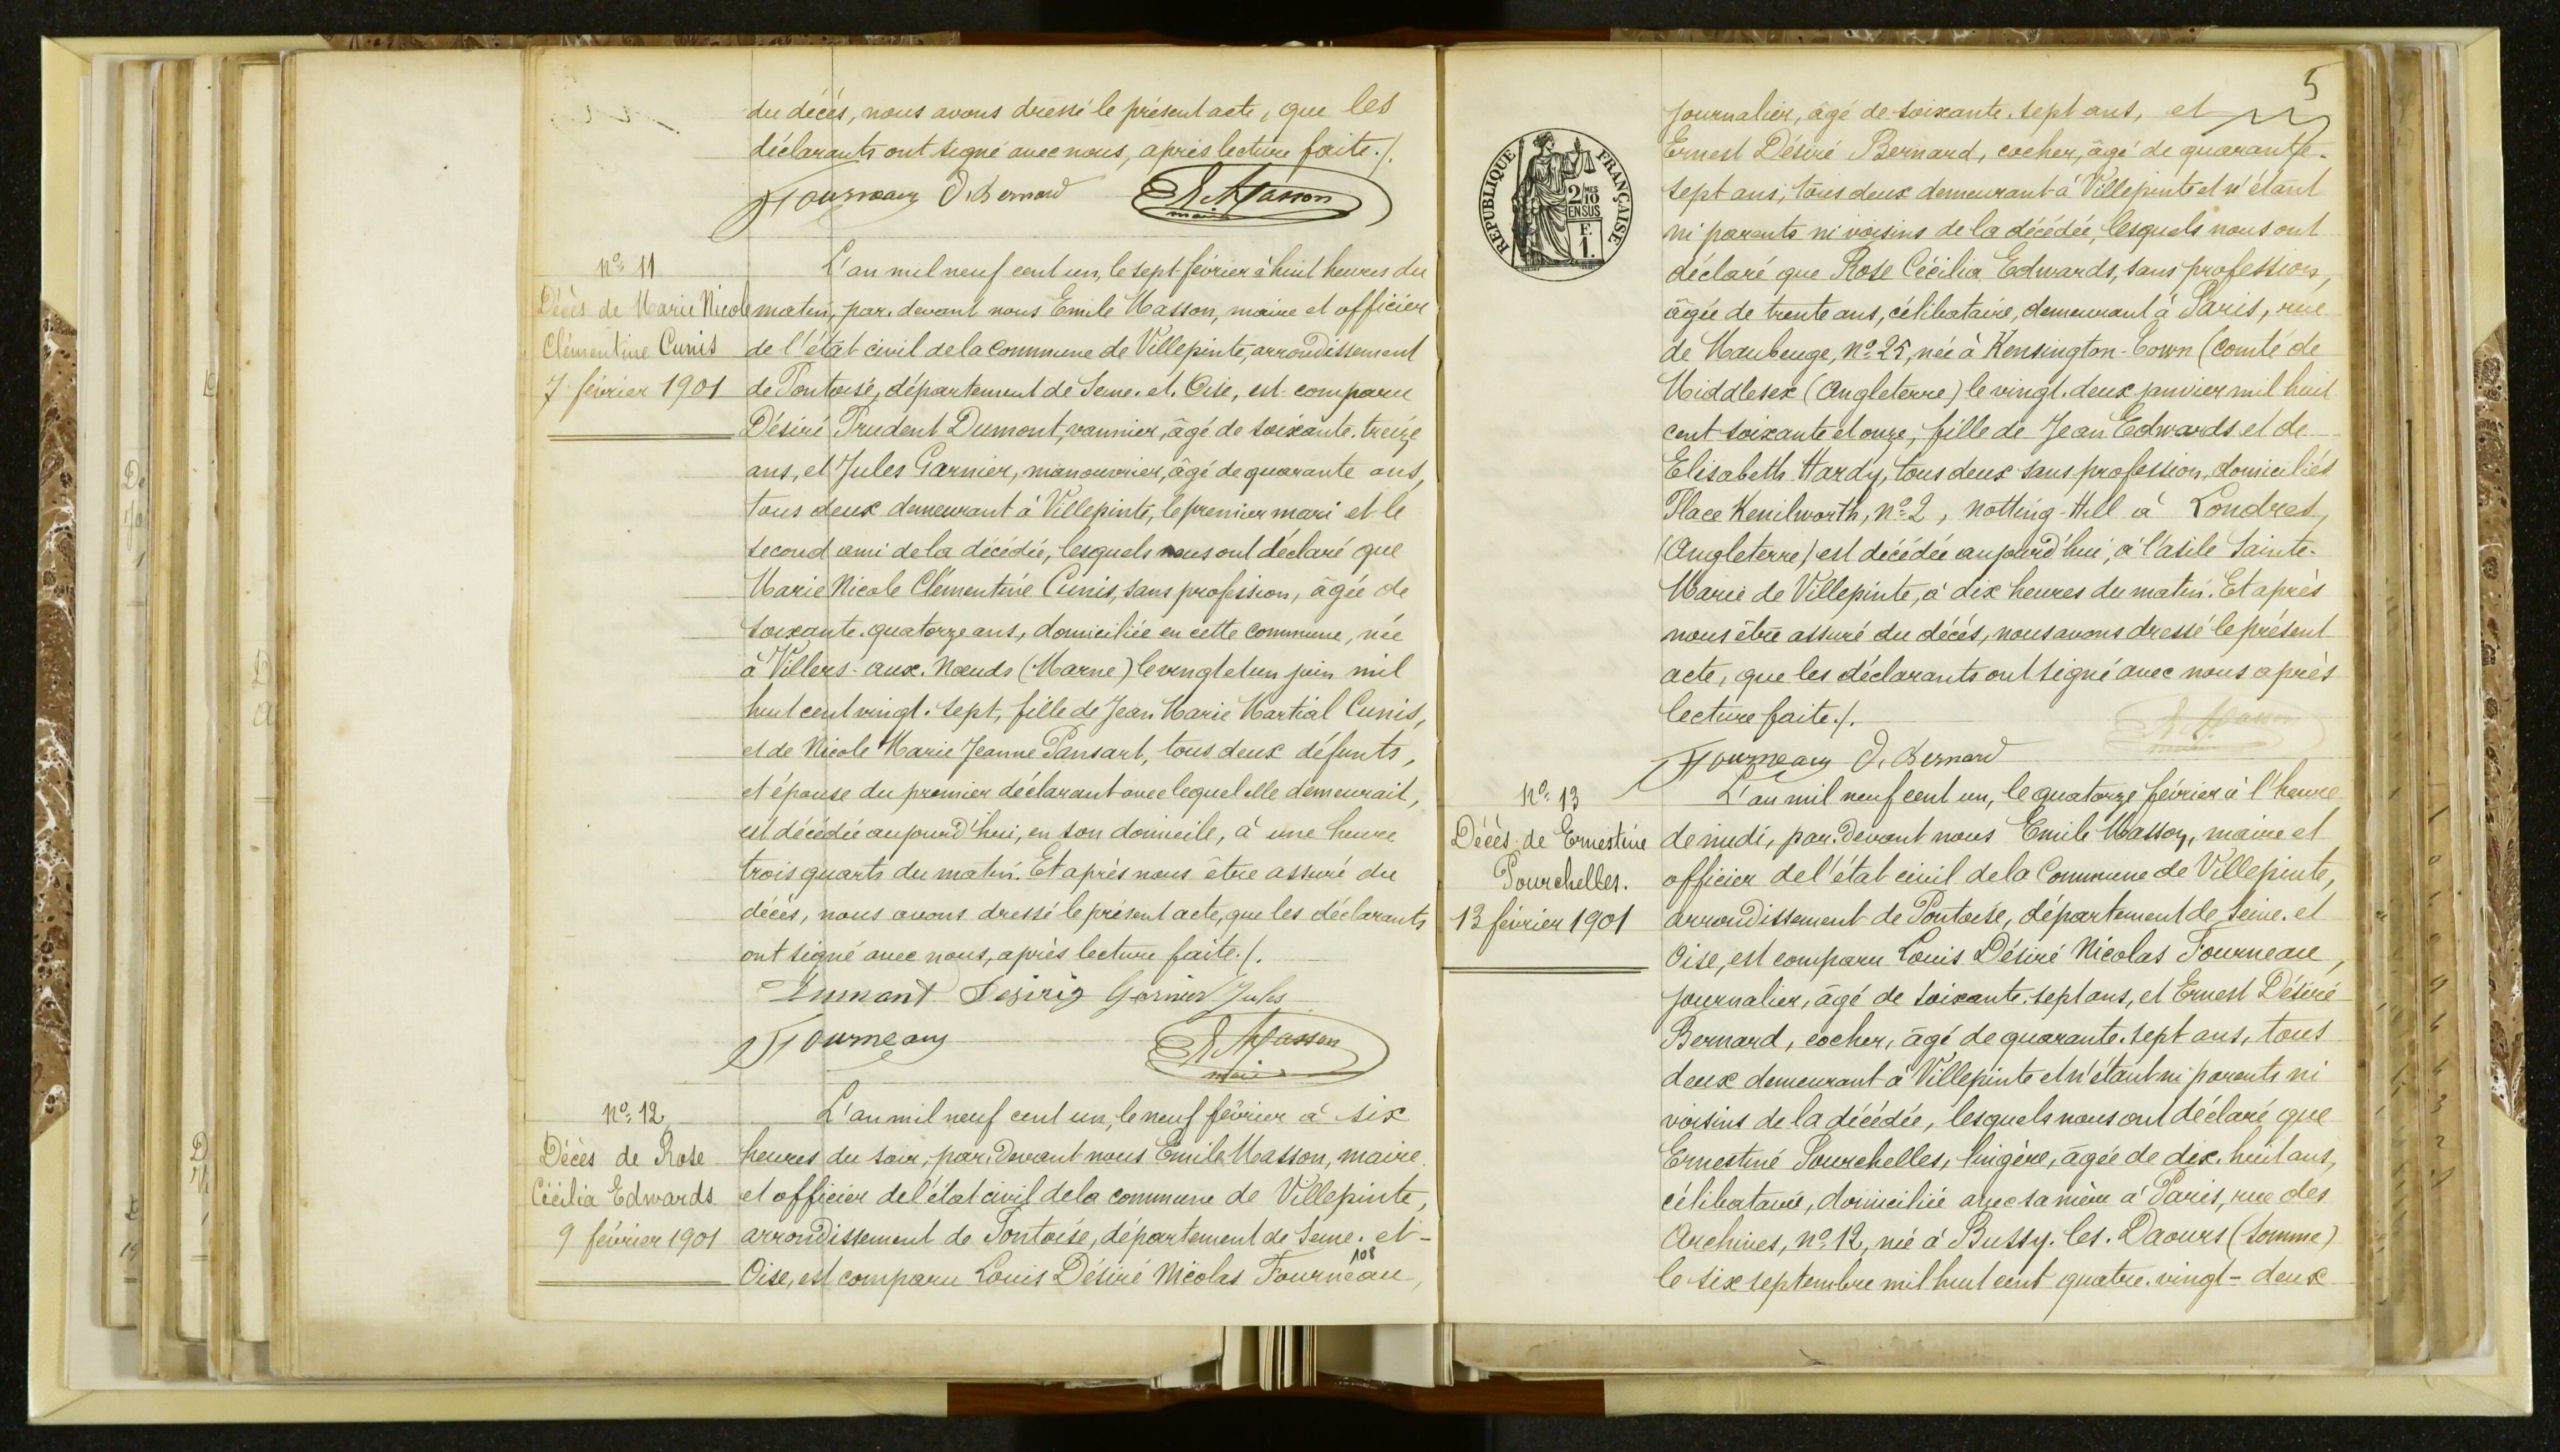 du décès, nous avons dressé le présent acte, que les
déclarants ont signé avec nous, après lecture faite./.
Fourneaux D. Bernard E. Masson
maire
n° 11
Décès de Marie Nicole
Clémentine Cunis
7 février 1901
L'an mil neuf cent un, le sept février à huit heures du
matin, par devant nous Emile Masson, maire et officier
de l'état civil de la Commune de Villepinte, arrondissement
de Pontoise, département de Seine-et-Oise, est comparu
Désiré Prudent Dumont, vannier, âgé de soixante-treize
ans, et Jules Garnier, manouvrier, âgé de quarante ans,
tous deux demeurant à Villepinte, le premier mari et le
second ami de la décédée, lesquels nous ont déclaré que
Marie Nicole Clémentine Cunis, sans profession, âgée de
soixante-quatorze ans, domiciliée en cette commune, née
à Villers-aux-Nœuds (Marne) le vingt et un juin mil
huit cent vingt-sept, fille de Jean Marie Martial Cunis,
et de Nicole Marie Jeanne Pansart, tous deux défunts,
et épouse du premier déclarant avec lequel elle demeurait,
est décédée aujourd'hui, en son domicile, à une heure
trois quarts du matin. Et après nous être assuré du
décès, nous avons dressé le présent acte, que les déclarants
ont signé avec nous, après lecture faite./.
Dumont Desiré Garnier Jules
Fourneaux E. Masson
maire
n° 12
Décès de Rose
Cécilia Edwards
9 février 1901
L'an mil neuf cent un, le neuf février à six
heures du soir, par devant nous Emile Masson, maire
et officier de l'état civil de la commune de Villepinte,
arrondissement de Pontoise, département de Seine-et-
Oise, est comparu Louis Désiré Nicolas Fourneau,
108
5
RÉPUBLIQUE FRANÇAISE
2/10 MES
EN SUS
F.
1.
journalier, âgé de soixante-sept ans, et
Ernest Désiré Bernard, cocher, âgé de quarante-
sept ans, tous deux demeurant à Villepinte et n'étant
ni parents ni voisins de la décédée, lesquels nous ont
déclaré que Rose Cécilia Edwards, sans profession,
âgée de trente ans, célibataire, demeurant à Paris, rue
de Maubeuge, n° 25, née à Kensington-Town (Comté de
Middlesex (Angleterre) le vingt-deux janvier mil huit
cent soixante et onze, fille de Jean Edwards et de
Elisabeth Hardy, tous deux sans profession, domiciliés
Place Kenilworth, n° 2, Notting-Hill à Londres,
(Angleterre) est décédée aujourd'hui, à l'asile Sainte-
Marie de Villepinte, à dix heures du matin. Et après
nous être assuré du décès, nous avons dressé le présent
acte, que les déclarants ont signé avec nous après
lecture faite./.
E. Masson
maire
Fourneaux D. Bernard
n° 13
Décès de Ernestine
Pourchelles.
13 février 1901
L'an mil neuf cent un, le quatorze février à l'heure
de midi, par devant nous Emile Masson, maire et
officier de l'état civil de la Commune de Villepinte,
arrondissement de Pontoise, département de Seine-et
Oise, est comparu Louis Désiré Nicolas Fourneau,
journalier, âgé de soixante-sept ans, et Ernest Désiré
Bernard, cocher, âgé de quarante-sept ans, tous
deux demeurant à Villepinte et n'étant ni parents ni
voisins de la décédée, lesquels nous ont déclaré que
Ernestine Pourchelles, lingère, âgée de dix-huit ans,
célibataire, domiciliée avec sa mère à Paris, rue des
Archives, n° 12, née à Bussy-les-Daours (Somme)
le six septembre mil huit cent quatre-vingt-deux